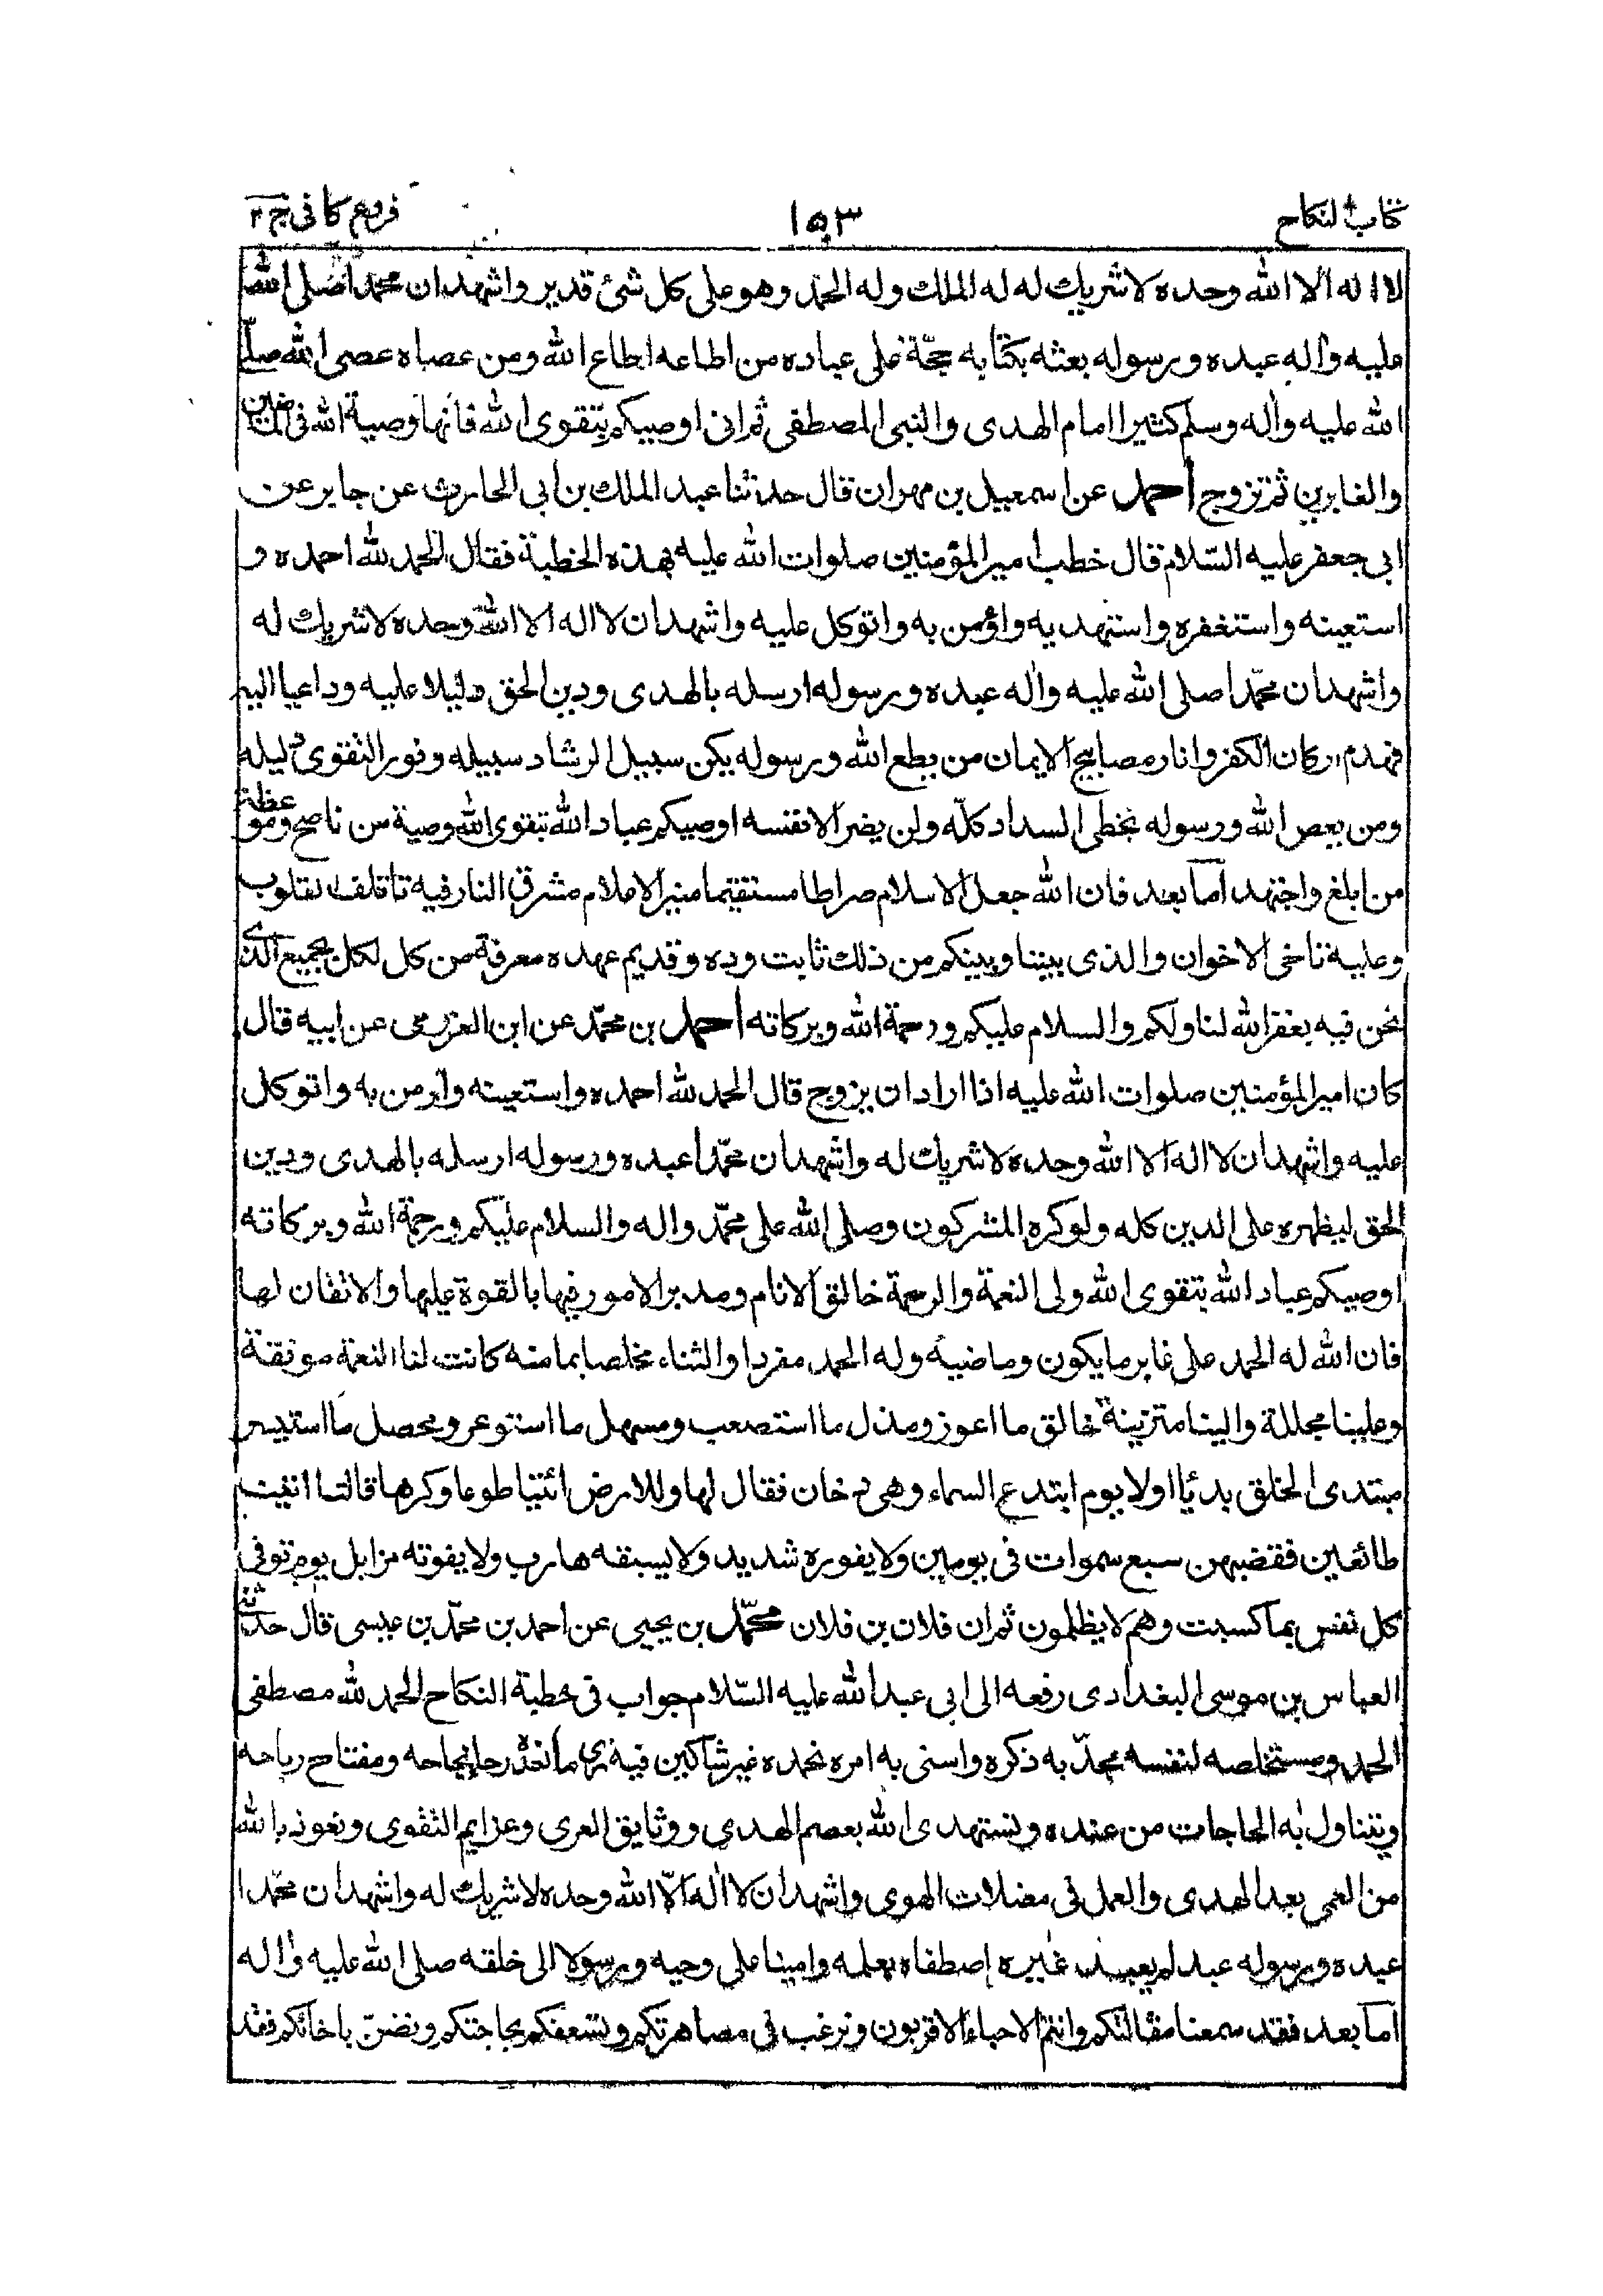 كتاب النكاح
١٥٣
فروع كافى ج ٢
لا اله الا الله وحده لا شريك له له الملك وله الحمد وهو على كل شئ قدير واشهد ان محمدا صلى الله
عليه وآله عبده ورسوله بعثه بكتابه حجّة على عباده من اطاعه اطاع الله ومن عصاه عصى الله صلّى
الله عليه وآله وسلم كثيرا امام الهدى والنبى المصطفى ثم انى اوصيكم بتقوى الله فانها وصية الله فى الماضين
والغابرين ثم تزوج احمد عن اسمعيل بن مهران قال حدثنا عبد الملك بن ابى الحارث عن جابر عن
ابى جعفر عليه السّلام قال خطب امير المؤمنين صلوات الله عليه بهذه الخطبة فقال الحمد لله احمده و
استعينه واستغفره واستهديه واؤمن به واتوكل عليه واشهد ان لا اله الا الله وحده لا شريك له
واشهد ان محمّدا صلى الله عليه وآله عبده ورسوله ارسله بالهدى ودين الحق دليلا عليه وداعيا اليه
فهدم اركان الكفر وانار مصابيح الايمان من يطع الله ورسوله يكن سبيل الرشاد سبيله ونور التقوى دليله
ومن يعص الله ورسوله يخطى السداد كلّه ولن يضر الا نفسه اوصيكم عباد الله بتقوى الله وصية من ناصح وموعظة
من ابلغ واجتهد اما بعد فان الله جعل الاسلام صراطا مستقيما منير الاعلام مشرق النار فيه تاتلف القلوب
وعليه تاخى الاخوان والذى بيننا وبينكم من ذلك ثابت وده وقديم عهده معرفة من كل لكل بجميع الذى
نحن فيه يغفر الله لنا ولكم والسلام عليكم ورحمة الله وبركاته احمد بن محمّد عن ابن العزرمى عن ابيه قال
كان امير المؤمنين صلوات الله عليه اذا اراد ان يزوج قال الحمد لله احمده واستعينه وآؤمن به واتوكل
عليه واشهد ان لا اله الا الله وحده لا شريك له واشهد ان محمّدا عبده ورسوله ارسله بالهدى ودين
الحق ليظهره على الدين كله ولو كره المشركون وصلى الله على محمّد واله والسلام عليكم ورحمة الله وبركاته
اوصيكم عباد الله بتقوى الله ولى النعمة والرحمة خالق الانام ومدبر الامور فيها بالقوة عليها والاتقان لها
فان الله له الحمد على غابر ما يكون وماضيه وله الحمد مفردا والثناء مخلصا بما منه كانت لنا النعمة مونقة
وعلينا مجللة والينا متزينة خالق ما اعوز ومذل ما استصعب ومسهل ما استوعر ومحصل ما استيسر
مبتدى الخلق بدئا اولا يوم ابتدع السماء وهى دخان فقال لها وللارض ائتيا طوعا وكرها قالتا اتينا
طائعين فقضيهن سبع سموات فى يومين ولا يفوره شديد ولا يسبقه هارب ولا يفوته مزابل يوم توفى
كل نفس بما كسبت وهم لا يظلمون ثم ان فلان بن فلان محمّد بن يحيى عن احمد بن محمّد بن عيسى قال حدثنى
العباس بن موسى البغدادى رفعه الى ابى عبد الله عليه السّلام جواب فى خطبة النكاح الحمد لله مصطفى
الحمد ومستخلصه لنفسه مجدّ به ذكره واسنى به امره نحمده غير شاكين فيه نرى ما نعدّه رجاء نجاحه ومفتاح رباحه
ونتناول به الحاجات من عنده ونستهدى الله بعصم الهدى ووثايق العرى وعزايم التقوى ونعوذ بالله
من العمى بعد الهدى والعمل فى مضلات الهوى واشهد ان لا اله الّا الله وحده لا شريك له واشهد ان محمّدا
عبده ورسوله عبد لم يعبد غيره اصطفاه بعلمه وامينا على وحيه ورسولا الى خلقه صلى الله عليه وآله
اما بعد فقد سمعنا مقالتكم وانتم الاحباء الاقربون ونرغب فى مصاهرتكم ونسعفكم بحاجتكم ونضنّ باخائكم فقد